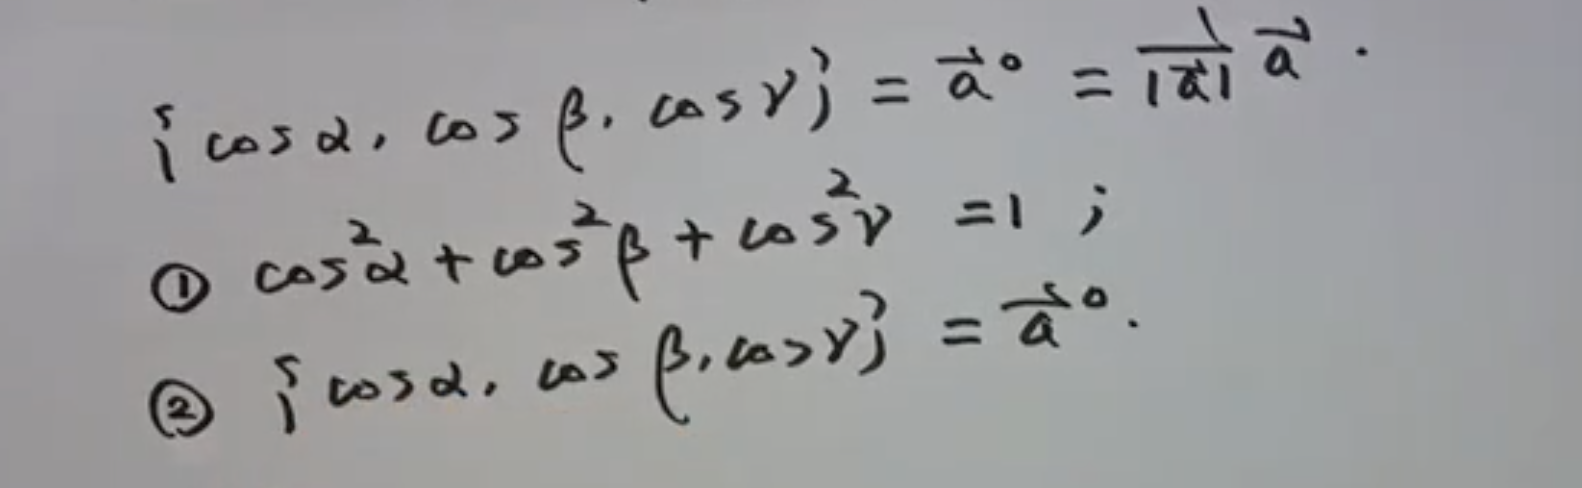 {cosα, cosβ, cosγ} = \vec{a}° = \frac{1}{|\vec{a}|} \vec{a}.
① cos²α + cos²β + cos²γ = 1;
② {cosα, cosβ, cosγ} = \vec{a}°.